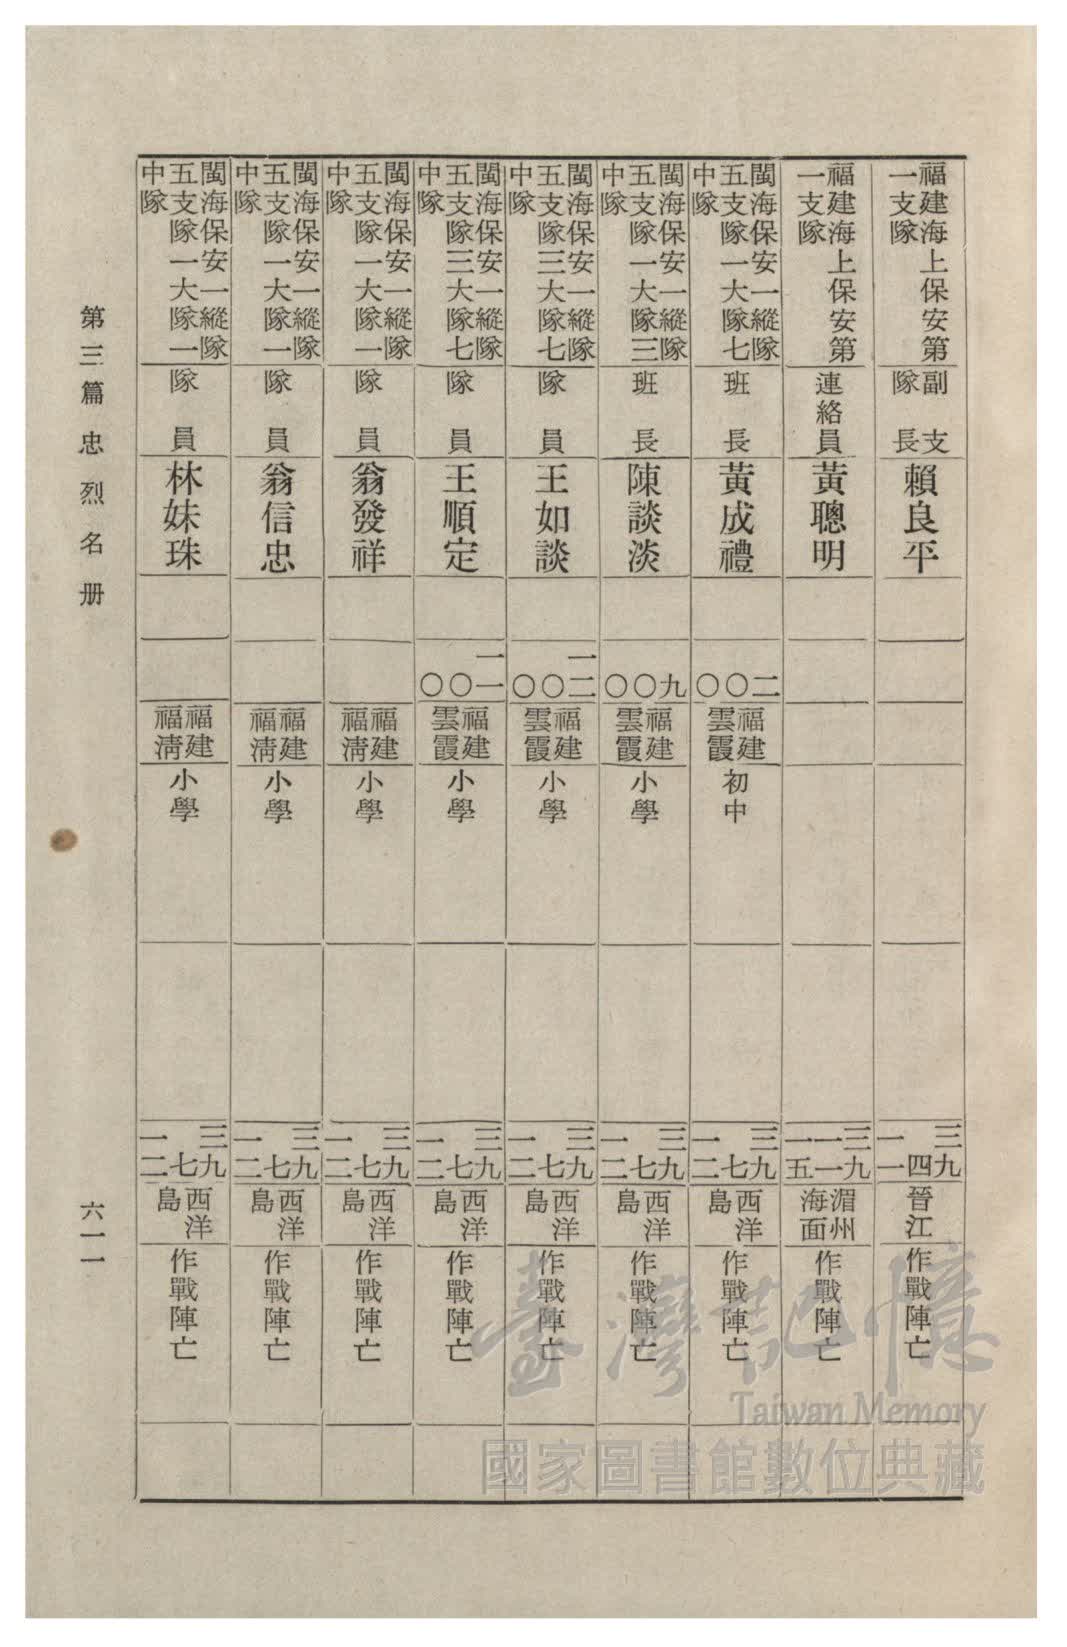 福建海上保安第
一支隊
副支
隊長
賴良平
三九
四
一一
晉江
作戰陣亡
福建海上保安第
一支隊
連絡員
黃聰明
三九
一一
一五
湄州
海面
作戰陣亡
閩海保安一縱隊
五支隊一大隊七
中隊
班長
黃成禮
二〇〇
福建
雲霞
初中
三九
七
一二
西洋
島
作戰陣亡
閩海保安一縱隊
五支隊一大隊三
中隊
班長
陳談淡
九〇〇
福建
雲霞
小學
三九
七
一二
西洋
島
作戰陣亡
閩海保安一縱隊
五支隊三大隊七
中隊
隊員
王如談
一二〇〇
福建
雲霞
小學
三九
七
一二
西洋
島
作戰陣亡
閩海保安一縱隊
五支隊三大隊七
中隊
隊員
王順定
一一〇〇
福建
雲霞
小學
三九
七
一二
西洋
島
作戰陣亡
閩海保安一縱隊
五支隊一大隊一
中隊
隊員
翁發祥
福建
福淸
小學
三九
七
一二
西洋
島
作戰陣亡
閩海保安一縱隊
五支隊一大隊一
中隊
隊員
翁信忠
福建
福淸
小學
三九
七
一二
西洋
島
作戰陣亡
閩海保安一縱隊
五支隊一大隊一
中隊
隊員
林妹珠
福建
福淸
小學
三九
七
一二
西洋
島
作戰陣亡
第三篇忠烈名册
六一一
臺灣記憶
Taiwan Memory
國家圖書館數位典藏